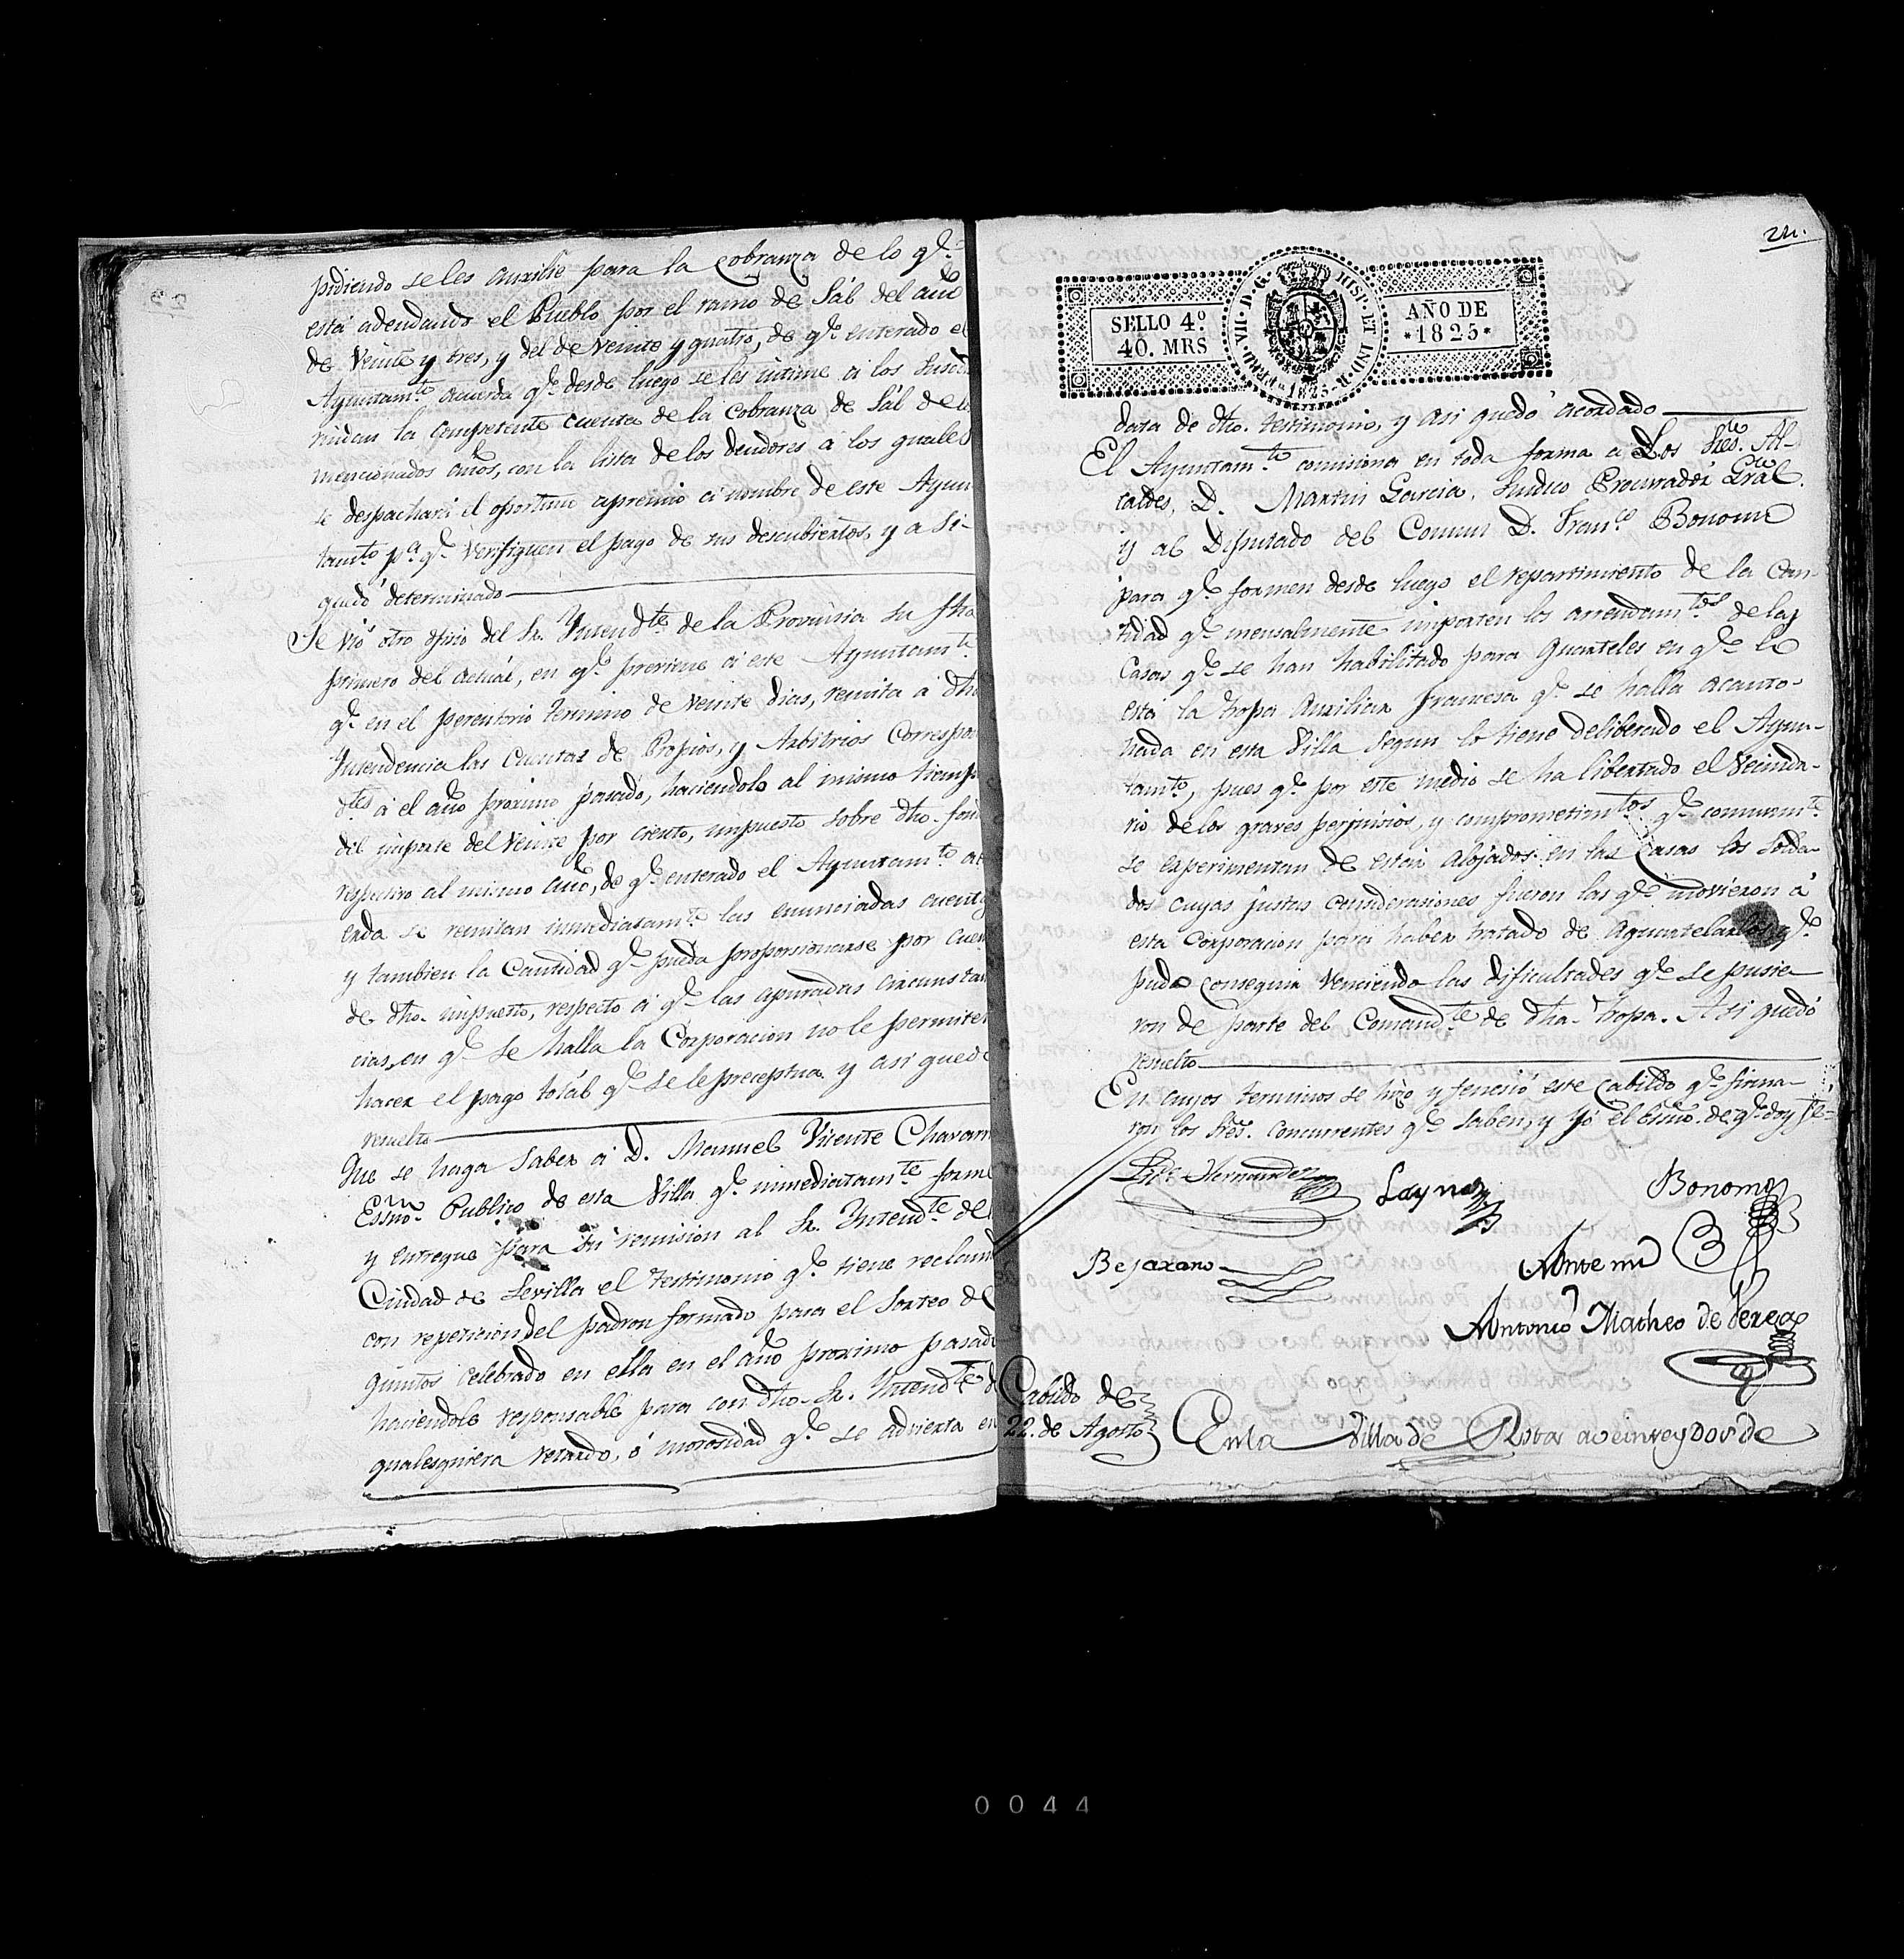 pidiendo se les auxilie para la cobranza de lo qe.
está adeudando el Pueblo por el ramo de Sál del año
de Veinte y tres, y del de veinte y quatro, de qe. enterado el
Ayuntamto. acuerda qe. desde luego se les intime a los suso
rindan la competente cuenta de la Cobranza de Sál de
mencionados años, con la lista de los deudores á los quales
se despachará el oportuno apremio á nombre de este Ayun
tamto. pa. qe. verifiquen el pago de sus descubiertos, y a si-
quedó determinado
Se vió otro oficio del Sr. Yntendte. de la Provincia su fha
primero del actuál, en qe. previene á este Ayuntamte.
qe. en el perentorio termino de veinte dias, remita á dha
Yntendencia las Cuentas de Propios, y Arbitrios Correspon
dtes. á el año proximo pasado, haciendolo al mismo tiempo
del importe del Veinte por ciento, impuesto sobre dho. fon
respectivo al mismo año, de qe. enterado el Ayuntamto. acu
erda se remitan inmediatamte. las enunciadas cuent
y tambien la Cantidad qe. pueda proporsionarse por cuen
de dho. impuesto, respecto á qe. las apuradas circunstan
cias, en qe. se halla la Corporacion no le permiten
hacer el pago totál qe. se le preceptua. y asi quedó
resuelto
Que se haga saber á D. Manuel Vicente Chavarr
Essno. Publico de esta Villa qe. inmediatamte. forme
y entregue para su remision al Sr. Yntendte. de
Ciudad de Sevilla el testimonio qe. tiene reclam
con repeticion del padron formado para el sorteo de
quintos celebrado en ella en el año proximo pasado
haciendole responsable para con dho. Sr. Yntendte. d
qualesquiera retardo, ó morosidad qe. se advierta en
24.
SELLO 4º
40. MRS
FERD. VII. D. G. HISP. ET IND. R. 1825.
AÑO DE
*1825*
data de dho. testimonio, y asi quedó acordado
El Ayuntamte. comisiona en toda forma a Los Sres. Al-
caldes, D. Martin Garcia, Sindico Procuradór Gral.
y al Diputado del Comun D. Franco. Bonomi
para qe. formen desde luego el repartimiento de la Can-
tidad qe. mensalmente importen los arrendamtos. de las
Casas qe. se han habilitado para Quarteles en qe. lo
está la tropa Auxiliar francesa qe. se halla acanto-
nada en esta Villa segun lo tiene deliberado el Ayun-
tamto, pues qe. por este medio se ha libertado el Vecinda-
rio de los graves perjuicios, y comprometimtos. qe. comunmte.
se experimentan de estar alojados en las Casas los Solda-
dos cuyas justas consideraciones fueron las qe. movieron á
esta Corporacion para haber tratado de aquartelarlos qe.
pudo conseguir venciendo las dificultades qe. se pusie-
ron de parte del Comandte. de dha. tropa. Asi quedó
resuelto
En cuyos terminos se hizo y feneció este Cabildo qe. firma-
ron los Sres. concurrentes qe. saben, y Yó el Esno. de qe. doy fe=
Ldo. Hernandez
Laynez
Bonomi
Bejarano
Ante mi
Antonio Matheo de Perea
Cabildo de
22. de Agosto
En la Villa de Rota a veinte y dos de
0044